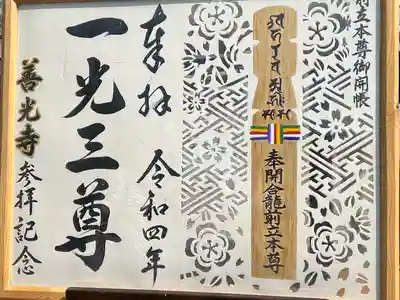 前立本尊御開帳
奉開龕前立本尊
奉拝 令和四年
一光三尊
善光寺 参拝記念